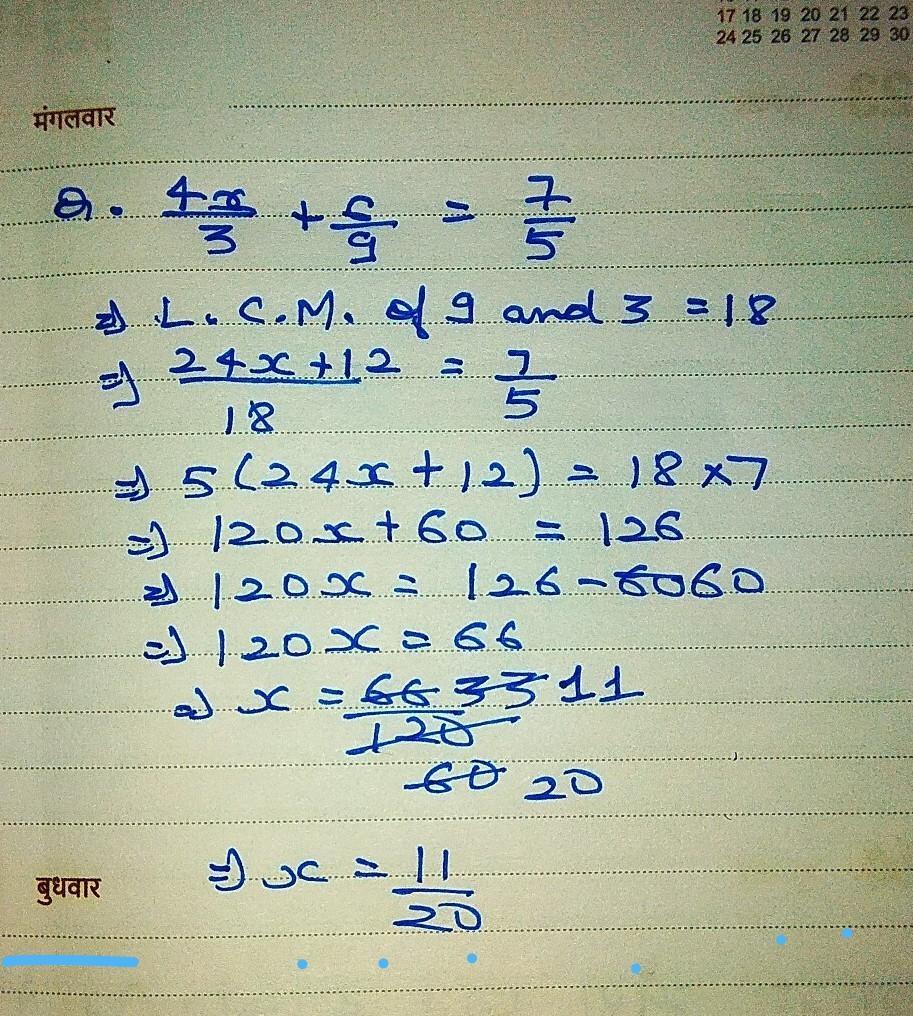 17 18 19 20 21 22 23
24 25 26 27 28 29 30
मंगलवार
Q. 4x/3 + 6/9 = 7/5
⇒ L.C.M. of 9 and 3 = 18
⇒ 24x+12/18 = 7/5
⇒ 5(24x+12) = 18×7
⇒ 120x+60 = 126
⇒ 120x = 126-6060
⇒ 120x = 66
⇒ x = 66 33 11
120
60 20
⇒ x = 11/20
बुधवार